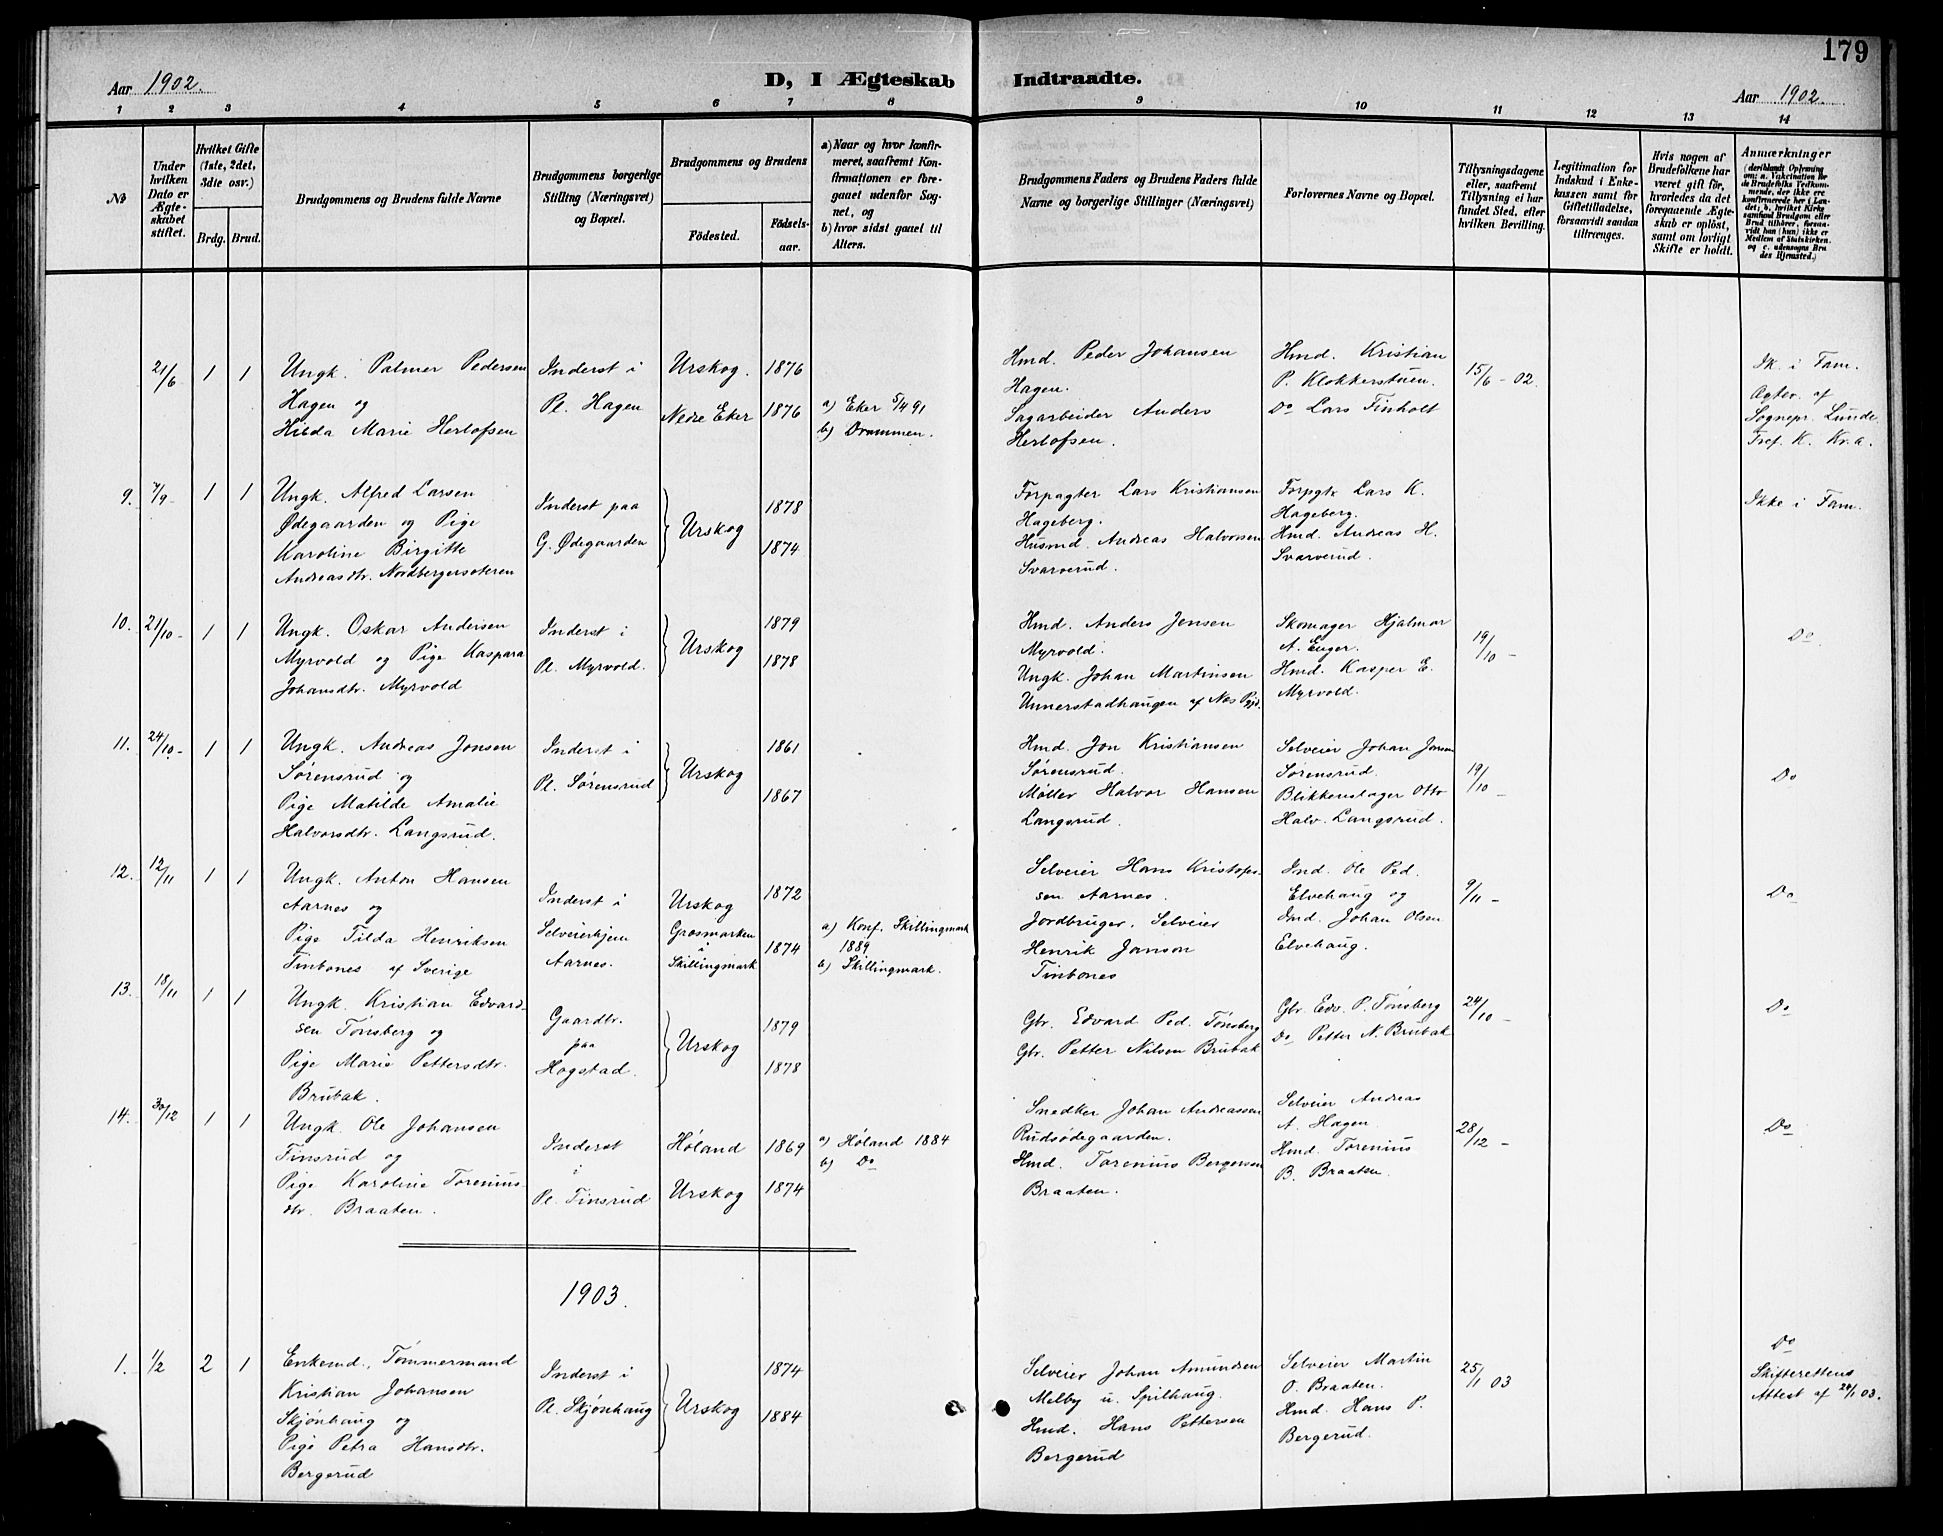 179
Aar 1902.
D, I Ægteskab Indtraadte.
Aar 1902.
1 2 3 4 5 6 7 8 9 10 11 12 13 14
No
Under hvilken Dato er Ægteskabet stiftet.
Hvilket Gifte (1ste, 2det, 3die osv.)
Brdg. Brud.
Brudgommens og Brudens fulde Navne
Brudgommens borgerlige Stilling (Næringsvei) og Bopæl.
Brudgommens og Brudens
Fødested.
Fødselsaar.
a) Naar og hvor konfirmeret, saafremt Konfirmationen er foregaaet udenfor Sognet, og
b) hvor sidst gaaet til Alters.
Brudgommens Faders og Brudens Faders fulde Navne og borgerlige Stillinger (Næringsvei)
Forlovernes Navne og Bopæl.
Tillysningsdagene eller, saafremt Tillysning ei har fundet Sted, efter hvilken Bevilling.
Legitimation for Indskud i Enkekassen samt for Giftetilladelse, forsaavidt saadan tiltrænges.
Hvis nogen af Brudefolkene har været gift før, hvorledes da det foregaaende Ægteskab er opløst, samt om lovligt Skifte er holdt.
Anmærkninger
(deriblandt Oplysning om: a. Vakcination for de Brudefolks Vedkommende, der ikke ere konfirmerede her i Landet; b. hvilket Kirkesamfund Brudgom eller Brud tilhører, forsaavidt han (hun) ikke er Medlem af Statskirken, og c. udensogns Brudes Hjemsted.)
21/6 1 1
Ungk. Palmer Pedersen
Hagen og
Hilda Marie Herlofsen
Inderst i
Pl. Hagen
Urskog. 1876
Nedre Eker 1876
a) Eker 5/4 91
b) Drammen.
Hmd. Peder Johansen
Hagen.
Sagarbeider Anders
Herlofsen.
Hmd. Kristian
P. Klokkerstuen.
Do Lars Finholt
15/6 - 02.
Ik. i Fam.
Ægtev. af
Sognepr. Lunde
Tref. K. Kr.a.
9. 7/9 - 1 1
Ungk. Alfred Larsen
Ødegaarden og Pige
Karoline Birgitte
Andreasdtr. Nordbergersæteren
Inderst paa
G. Ødegaarden
Urskog
1878
1874
Forpagter Lars Kristiansen
Hageberg.
Husmd. Andreas Halvorsen
Svarverud.
Forpgtr Lars K.
Hageberg.
Hmd. Andreas H.
Svarverud.
Ikke i Fam.
10. 21/10 - 1 1
Ungk. Oskar Andersen
Myrvold og Pige Kaspara
Johansdtr. Myrvold
Inderst i
Pl. Myrvold.
Urskog
1879
1878
Hmd. Anders Jensen
Myrvold.
Ungk. Johan Martinsen
Unnerstadhaugen af Nes Pgjd.
Skomager Hjalmar
A. Enger.
Hmd. Kasper E.
Myrvold.
19/10 -
Do
11. 24/10 - 1 1
Ungk. Andreas Jonsen
Sørensrud og
Pige Matilde Amalie
Halvorsdtr. Langsrud.
Inderst i
Pl. Sørensrud
Urskog
1861
1867
Hmd. Jon Kristiansen
Sørensrud.
Møller Halvor Hansen
Langsrud.
Selveier Johan Jonsen
Sørensrud.
Blikkenslager Otto
Halv. Langsrud.
19/10 -
Do
12. 12/11 1 1
Ungk. Anton Hansen
Aarnes og
Pige Tilda Henriksen
Tinbones af Sverige
Inderst i
Selveierhjem
Aarnes.
Urskog 1872
Græsmarken
i
Skillingmark 1874
a) Konf. Skillingmark
1889
b) Skillingmark.
Selveier Hans Kristopersen
Aarnes.
Jordbruger, Selveier
Henrik Janson
Tinbones
Ind. Ole Ped.
Elvehaug og
Ind. Johan Olsen
Elvehaug.
9/11 -
Do
13. 18/11 1 1
Ungk. Kristian Edvardsen
Tønsberg og
Pige Marie Pettersdtr.
Brubak.
Gaardbr.
paa
Hogstad.
Urskog
1879
1878
Gbr. Edvard Ped. Tønsberg
Gbr. Petter Nilsen Brubak
Gbr. Edv. P. Tønsberg
Do Petter N. Brubak
24/10 -
Do
14. 30/12 1 1
Ungk. Ole Johansen
Tinsrud og
Pige Karoline Toreniusdtr.
Braaten.
Inderst
i
Pl. Tinsrud
Høland 1869
Urskog 1874
a) Høland 1884
b) Do
Snedker Johan Andreassen
Rudsødegaarden.
Hmd. Torenius Bergersen
Braaten.
Selveier Andreas
A. Hagen.
Hmd. Torenius
B. Braaten.
28/12 -
Do
1903.
1. 1/2 2 1
Enkemd., Tømmermand
Kristian Johansen
Skjønhaug og
Pige Petra Hansdtr.
Bergerud
Inderst i
Pl. Skjønhaug
Urskog
1874
1884
Selveier Johan Amundsen
Melby u. Spilhaug.
Hmd. Hans Pettersen
Bergerud
Selveier Martin
O. Braaten.
Hmd. Hans P.
Bergerud.
25/1 03
Do
Skifterettens
Attest af 24/1 03.